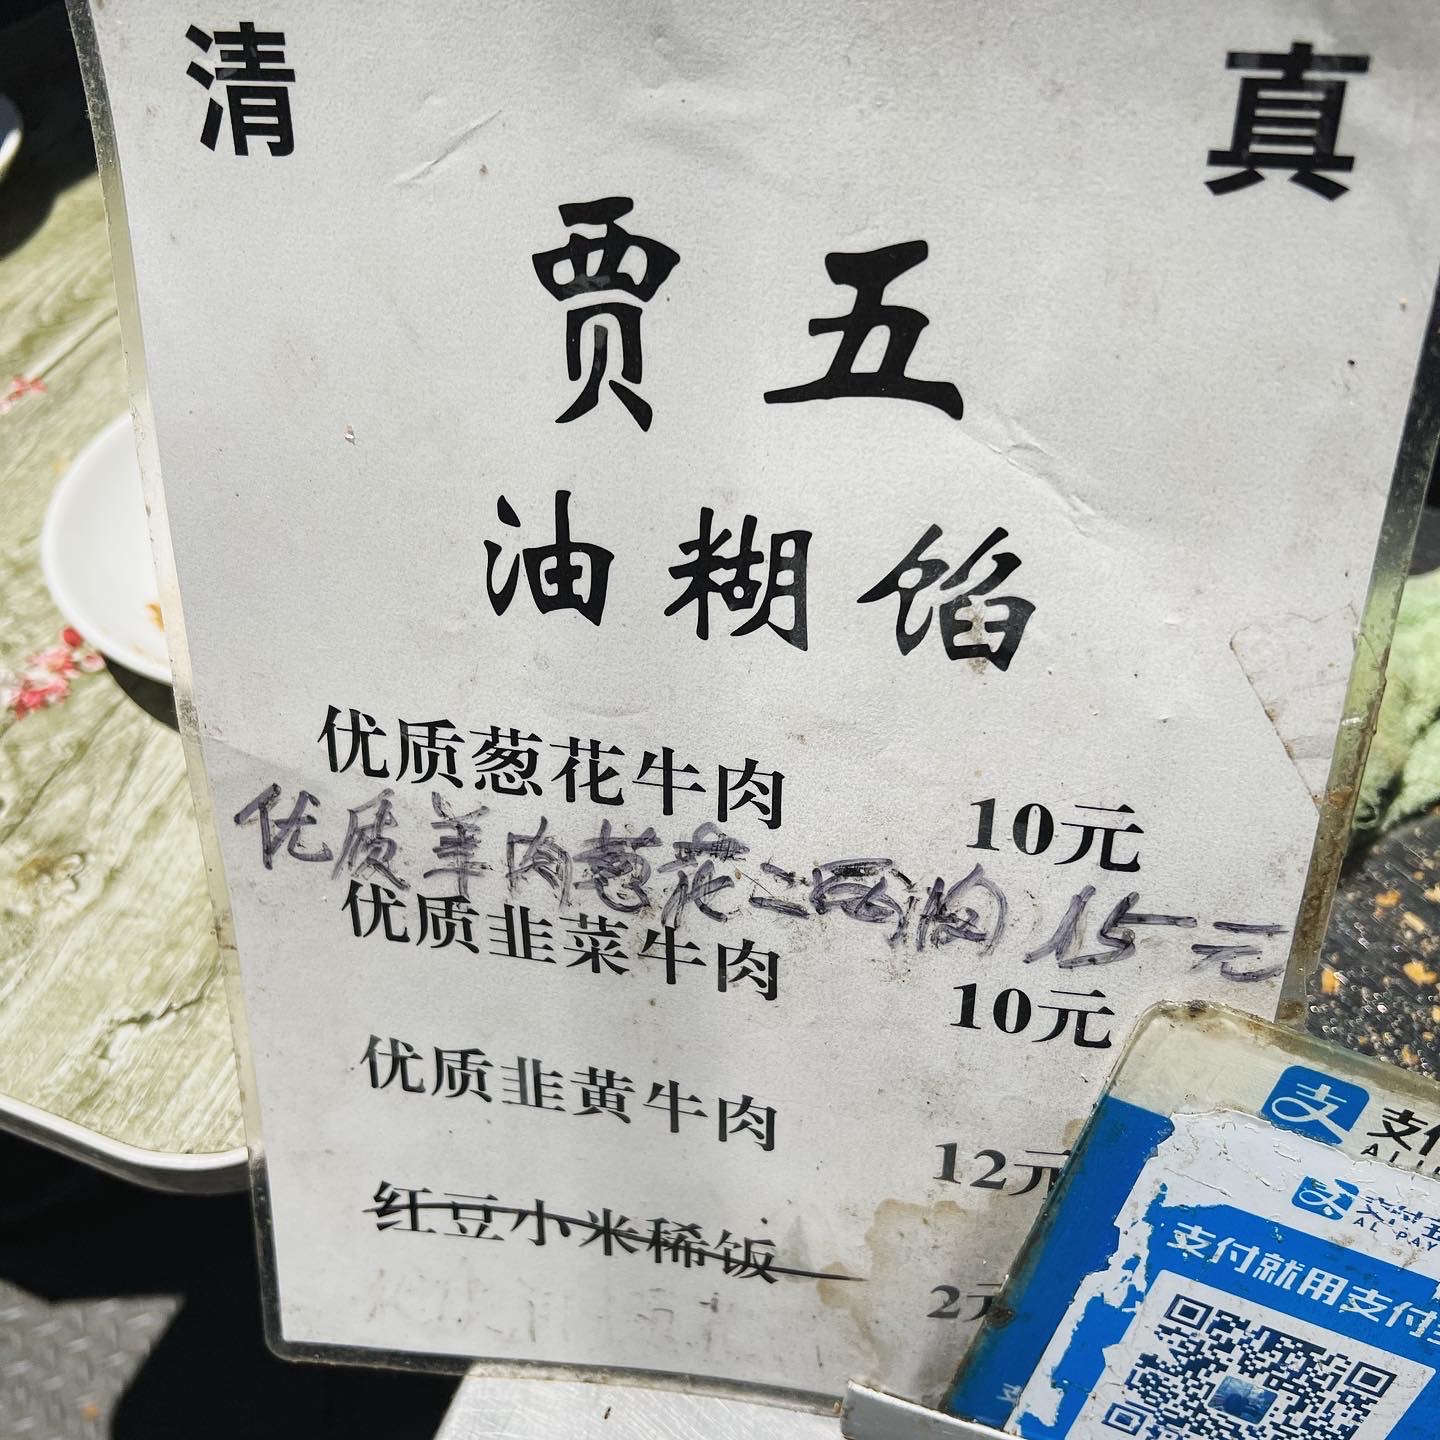 清 真
贾五
油糊馅
优质葱花牛肉 10元
优质羊肉葱花二两肉 15元
优质韭菜牛肉 10元
优质韭黄牛肉 12元
红豆小米稀饭 2元
支付
ALI
支付宝
ALIPAY
支付就用支付宝